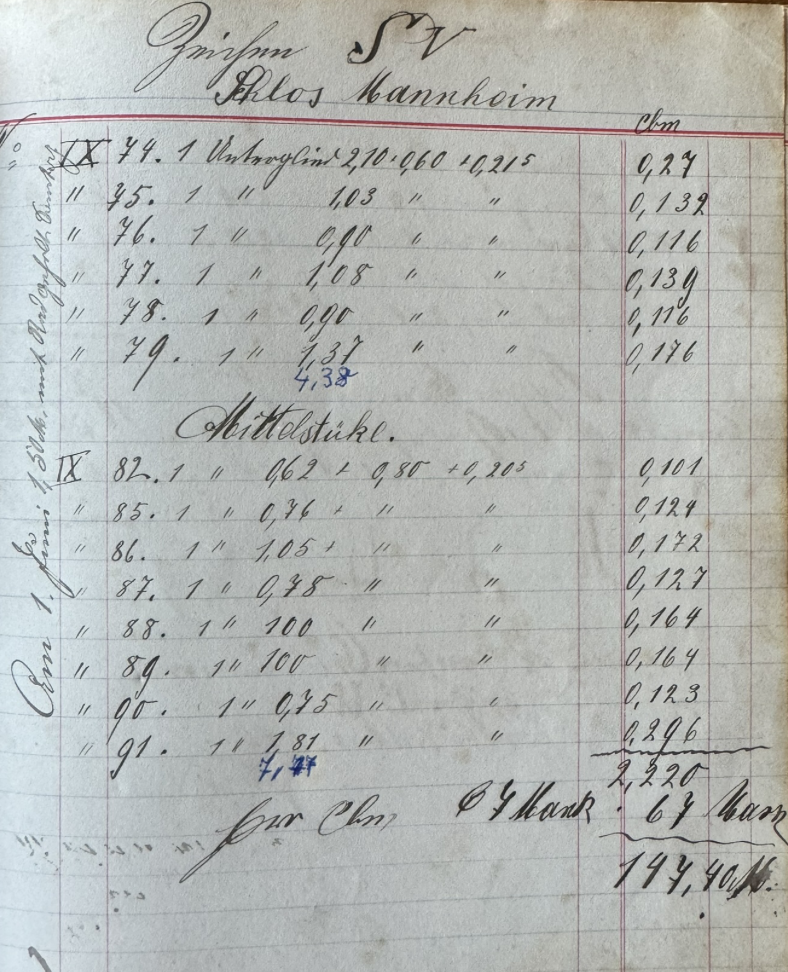 Zeichen SV
Schlos Mannheim
cbm
IX 74. 1 Unterglied 2,10 · 0,60 + 0,21⁵ 0,27
" 75. 1 " 1,03 " " 0,132
" 76. 1 " 0,90 " " 0,116
" 77. 1 " 1,08 " " 0,139
" 78. 1 " 0,90 " " 0,116
" 79. 1 " 1,37 " " 0,176
4,38
Mittelstüke.
IX 82. 1 " 0,62 + 0,80 + 0,20⁵ 0,101
" 85. 1 " 0,76 + " " 0,124
" 86. 1 " 1,05 + " " 0,172
" 87. 1 " 0,78 " " 0,127
" 88. 1 " 100 " " 0,164
" 89. 1 " 100 " " 0,164
" 90. 1 " 0,75 " " 0,123
" 91. 1 " 1,81 " " 0,296
2,220
per Cbm 67 Mark · 67 Mark
147,40 M.
Am 1. Juni 1,50 mit